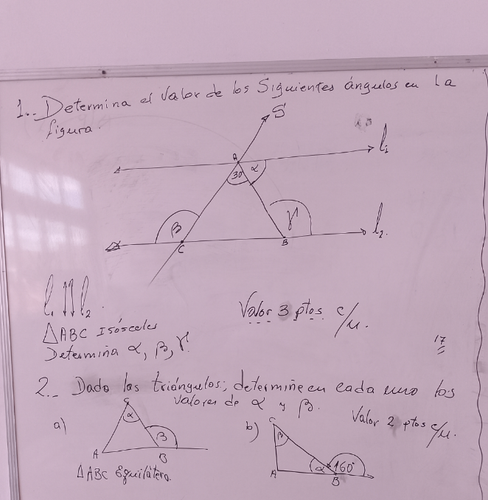 1.. Determina el Valor de los Siguientes ángulos en la
figura.
S
l₁
A
30 α
β
γ
l₂
C
B
l₁ ⇈ l₂
△ABC Isósceles
Determina α, β, γ.
Valor 3 ptos c/u.
17
2.- Dado los triángulos; determine en cada uno los
valores de α y β.
Valor 2 ptos c/u.
a)
C
α
β
A
B
△ABC Equilátero.
b)
C
β
α
160°
A
B